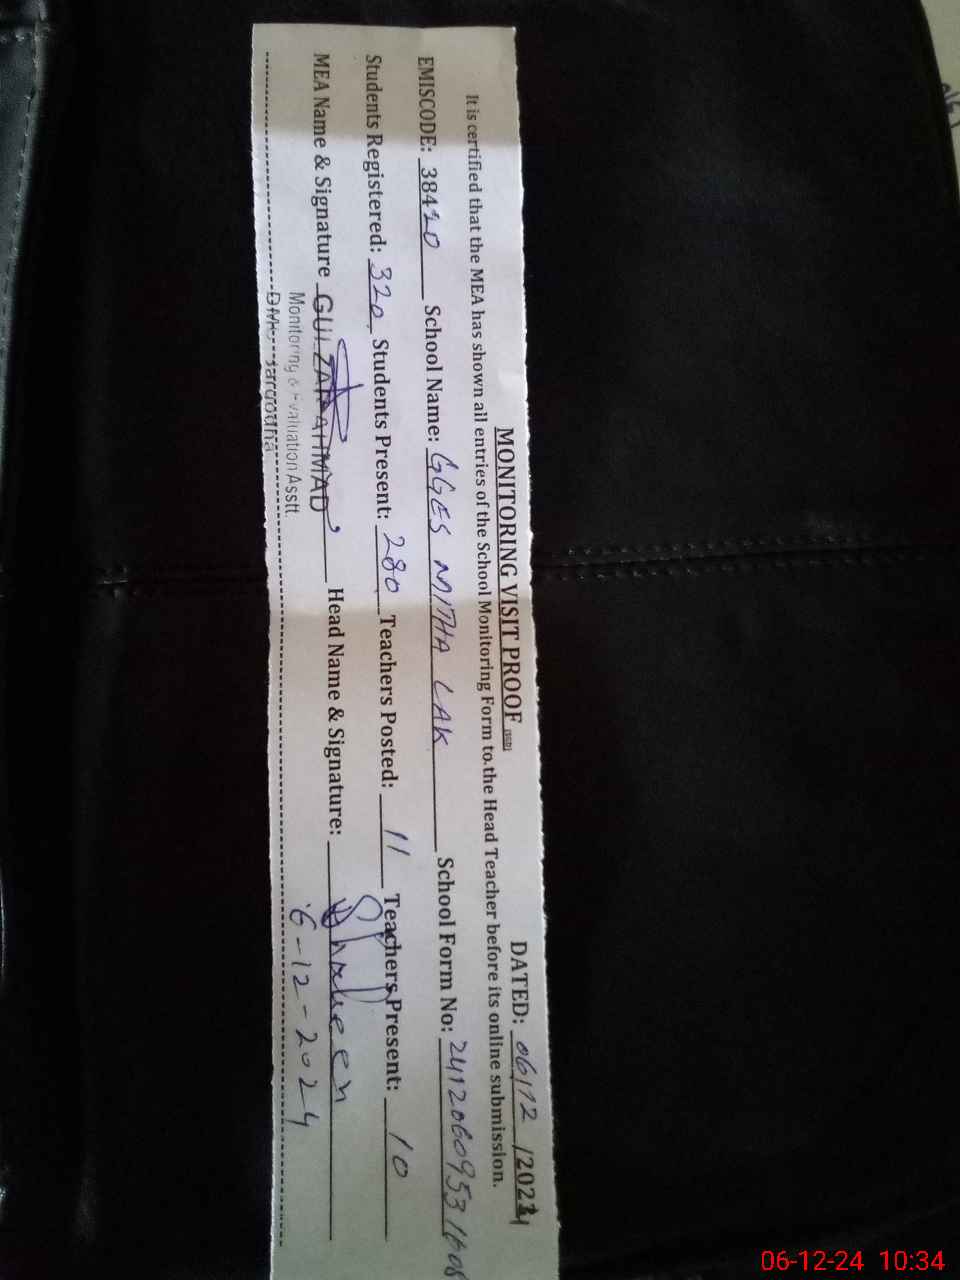 MONITORING VISIT PROOF
DATED: 06/12/2024
It is certified that the MEA has shown all entries of the School Monitoring Form to the Head Teacher before its online submission.
EMISCODE: 38420 School Name: GGES MITHA LAK School Form No:
Students Registered: 320 Students Present: 280 Teachers Posted: 11 Teachers Present: 10
MEA Name & Signature GULZAR AHMAD Head Name & Signature:
Monitoring & Evaluation Asstt.
6-12-2024
06-12-24 10:34